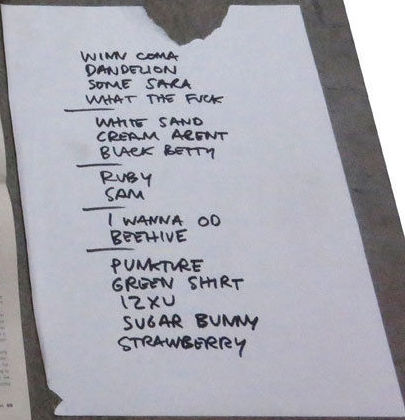 WINN COMA
DANDELION
SOME SARA
WHAT THE FUCK
WHITE SAND
CREAM AGENT
BLACK BETTY
RUBY
SAM
I WANNA OD
BEEHIVE
PUNKTURE
GREEN SHIRT
12XU
SUGAR BUNNY
STRAWBERRY